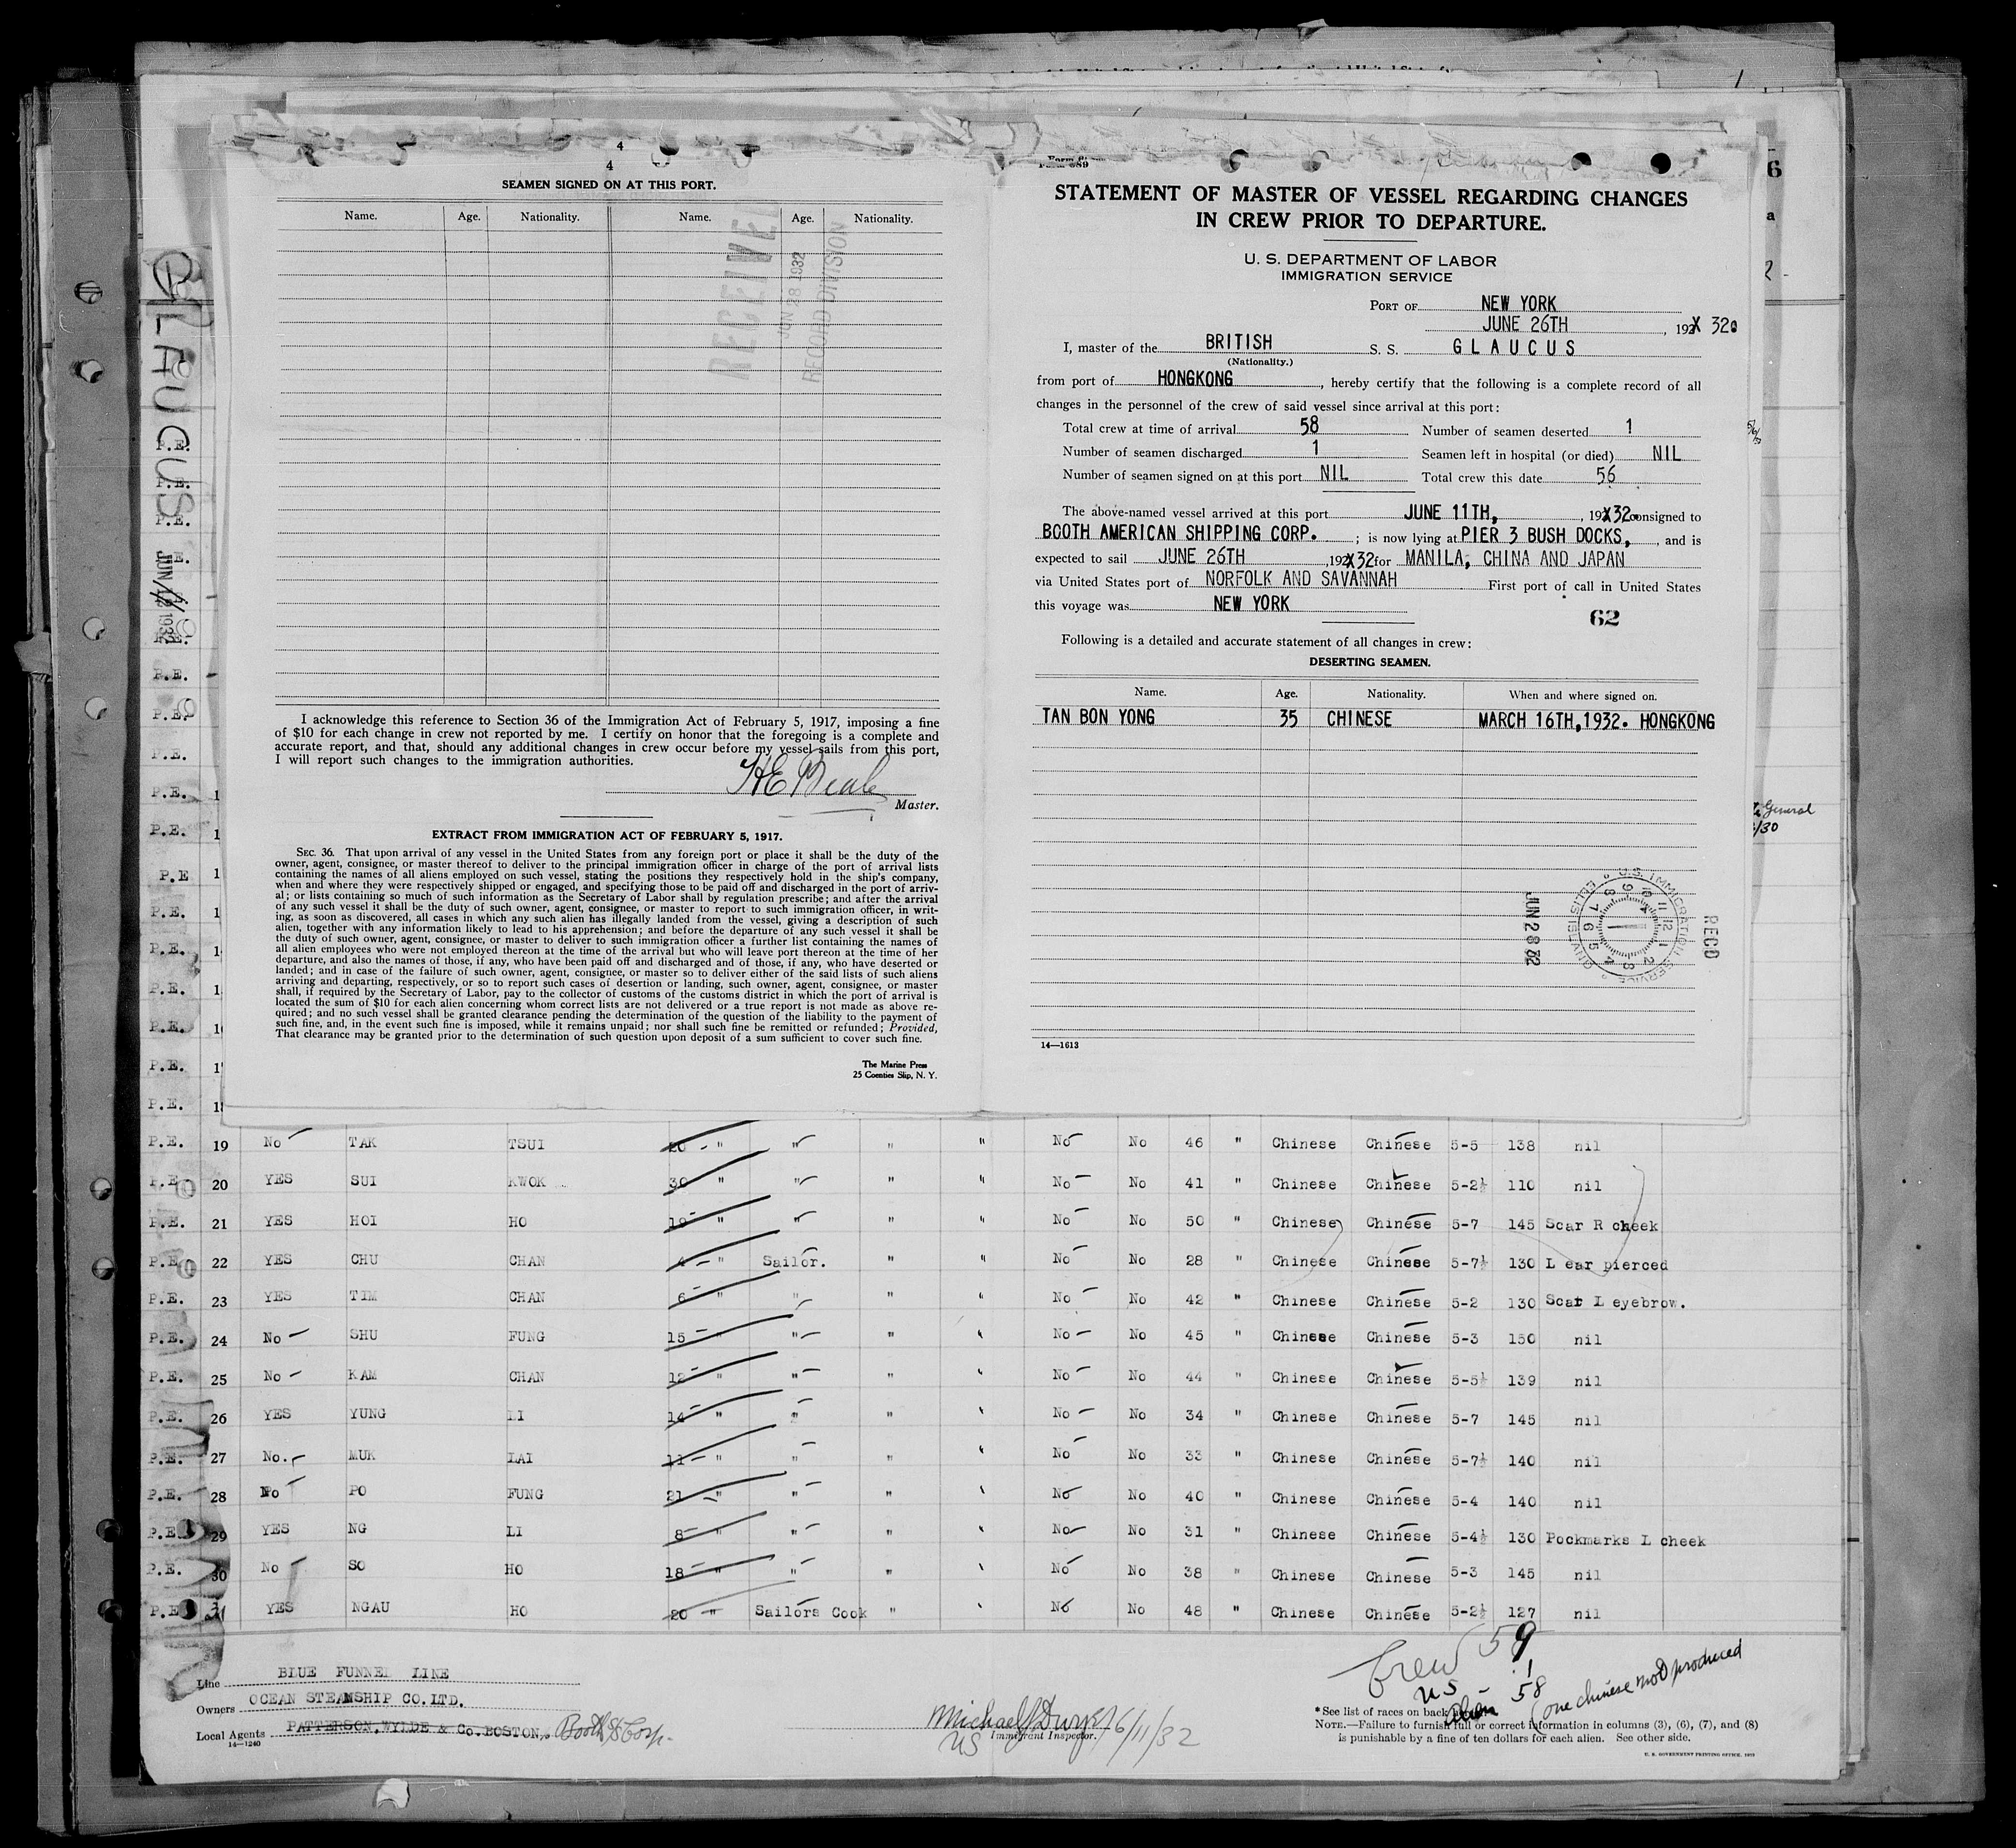 4
4
SEAMEN SIGNED ON AT THIS PORT.
Name. Age. Nationality. Name. Age. Nationality.
RECEIVED
JUN 28 1932
RECORD DIVISION
I acknowledge this reference to Section 36 of the Immigration Act of February 5, 1917, imposing a fine
of $10 for each change in crew not reported by me. I certify on honor that the foregoing is a complete and
accurate report, and that, should any additional changes in crew occur before my vessel sails from this port,
I will report such changes to the immigration authorities.
Master.
EXTRACT FROM IMMIGRATION ACT OF FEBRUARY 5, 1917.
SEC. 36. That upon arrival of any vessel in the United States from any foreign port or place it shall be the duty of the
owner, agent, consignee, or master thereof to deliver to the principal immigration officer in charge of the port of arrival lists
containing the names of all aliens employed on such vessel, stating the positions they respectively hold in the ship's company,
when and where they were respectively shipped or engaged, and specifying those to be paid off and discharged in the port of arriv-
al; or lists containing so much of such information as the Secretary of Labor shall by regulation prescribe; and after the arrival
of any such vessel it shall be the duty of such owner, agent, consignee, or master to report to such immigration officer, in writ-
ing, as soon as discovered, all cases in which any such alien has illegally landed from the vessel, giving a description of such
alien, together with any information likely to lead to his apprehension; and before the departure of any such vessel it shall be
the duty of such owner, agent, consignee, or master to deliver to such immigration officer a further list containing the names of
all alien employees who were not employed thereon at the time of the arrival but who will leave port thereon at the time of her
departure, and also the names of those, if any, who have been paid off and discharged and of those, if any, who have deserted or
landed; and in case of the failure of such owner, agent, consignee, or master so to deliver either of the said lists of such aliens
arriving and departing, respectively, or so to report such cases of desertion or landing, such owner, agent, consignee, or master
shall, if required by the Secretary of Labor, pay to the collector of customs of the customs district in which the port of arrival is
located the sum of $10 for each alien concerning whom correct lists are not delivered or a true report is not made as above re-
quired; and no such vessel shall be granted clearance pending the determination of the question of the liability to the payment of
such fine, and, in the event such fine is imposed, while it remains unpaid; nor shall such fine be remitted or refunded; Provided,
That clearance may be granted prior to the determination of such question upon deposit of a sum sufficient to cover such fine.
The Marine Press
25 Coenties Slip, N. Y.
STATEMENT OF MASTER OF VESSEL REGARDING CHANGES
IN CREW PRIOR TO DEPARTURE.
U. S. DEPARTMENT OF LABOR
IMMIGRATION SERVICE
PORT OF NEW YORK
JUNE 26TH , 192X 32.
I, master of the BRITISH S. S. GLAUCUS
(Nationality.)
from port of HONGKONG , hereby certify that the following is a complete record of all
changes in the personnel of the crew of said vessel since arrival at this port:
Total crew at time of arrival 58 Number of seamen deserted 1
Number of seamen discharged 1 Seamen left in hospital (or died) NIL
Number of seamen signed on at this port NIL Total crew this date 56
The above-named vessel arrived at this port JUNE 11TH, , 192X32. consigned to
BOOTH AMERICAN SHIPPING CORP. ; is now lying at PIER 3 BUSH DOCKS, , and is
expected to sail JUNE 26TH ,192X32 for MANILA, CHINA AND JAPAN
via United States port of NORFOLK AND SAVANNAH First port of call in United States
this voyage was NEW YORK
62
Following is a detailed and accurate statement of all changes in crew:
DESERTING SEAMEN.
Name. Age. Nationality. When and where signed on.
TAN BON YONG 35 CHINESE MARCH 16TH,1932. HONGKONG
RECD
U.S. IMMIGRATION SERVICE
JUN 28 32
14—1613
GLAUCUS
JUN 1932
General
/30
P.E. 19 No TAK TSUI 20 " " " " No No 46 " Chinese Chinese 5-5 138 nil
P.E. 20 YES SUI KWOK 30 " " " " No No 41 " Chinese Chinese 5-2½ 110 nil
P.E. 21 YES HOI HO 19 " " " " No No 50 " Chinese Chinese 5-7 145 Scar R cheek
P.E. 22 YES CHU CHAN 4 " Sailor. " " No No 28 " Chinese Chinese 5-7½ 130 L ear pierced
P.E. 23 YES TIM CHAN 6 " " " " No No 42 " Chinese Chinese 5-2 130 Scar L eyebrow.
P.E. 24 No SHU FUNG 15 " " " " No No 45 " Chinese Chinese 5-3 150 nil
P.E. 25 No KAM CHAN 12 " " " " No No 44 " Chinese Chinese 5-5½ 139 nil
P.E. 26 YES YUNG LI 14 " " " " No No 34 " Chinese Chinese 5-7 145 nil
P.E. 27 No. MUK LAI 11 " " " " No No 33 " Chinese Chinese 5-7½ 140 nil
P.E. 28 No PO FUNG 21 " " " " No No 40 " Chinese Chinese 5-4 140 nil
P.E. 29 YES NG LI 8 " " " " No No 31 " Chinese Chinese 5-4½ 130 Pockmarks L cheek
P.E. 30 No SO HO 18 " " " " No No 38 " Chinese Chinese 5-3 145 nil
P.E. 31 YES NGAU HO 20 " Sailors Cook " " No No 48 " Chinese Chinese 5-2½ 127 nil
Line BLUE FUNNEL LINE
Owners OCEAN STEAMSHIP CO.LTD.
Local Agents PATTERSON,WYLDE & Co.BOSTON,
14—1240
Michael J Dwyer 6/11/32
US
Immigrant Inspector.
Crew 59
US 1
alien 58
(one chinese not produced
* See list of races on back
NOTE.—Failure to furnish full or correct information in columns (3), (6), (7), and (8)
is punishable by a fine of ten dollars for each alien. See other side.
U. S. GOVERNMENT PRINTING OFFICE